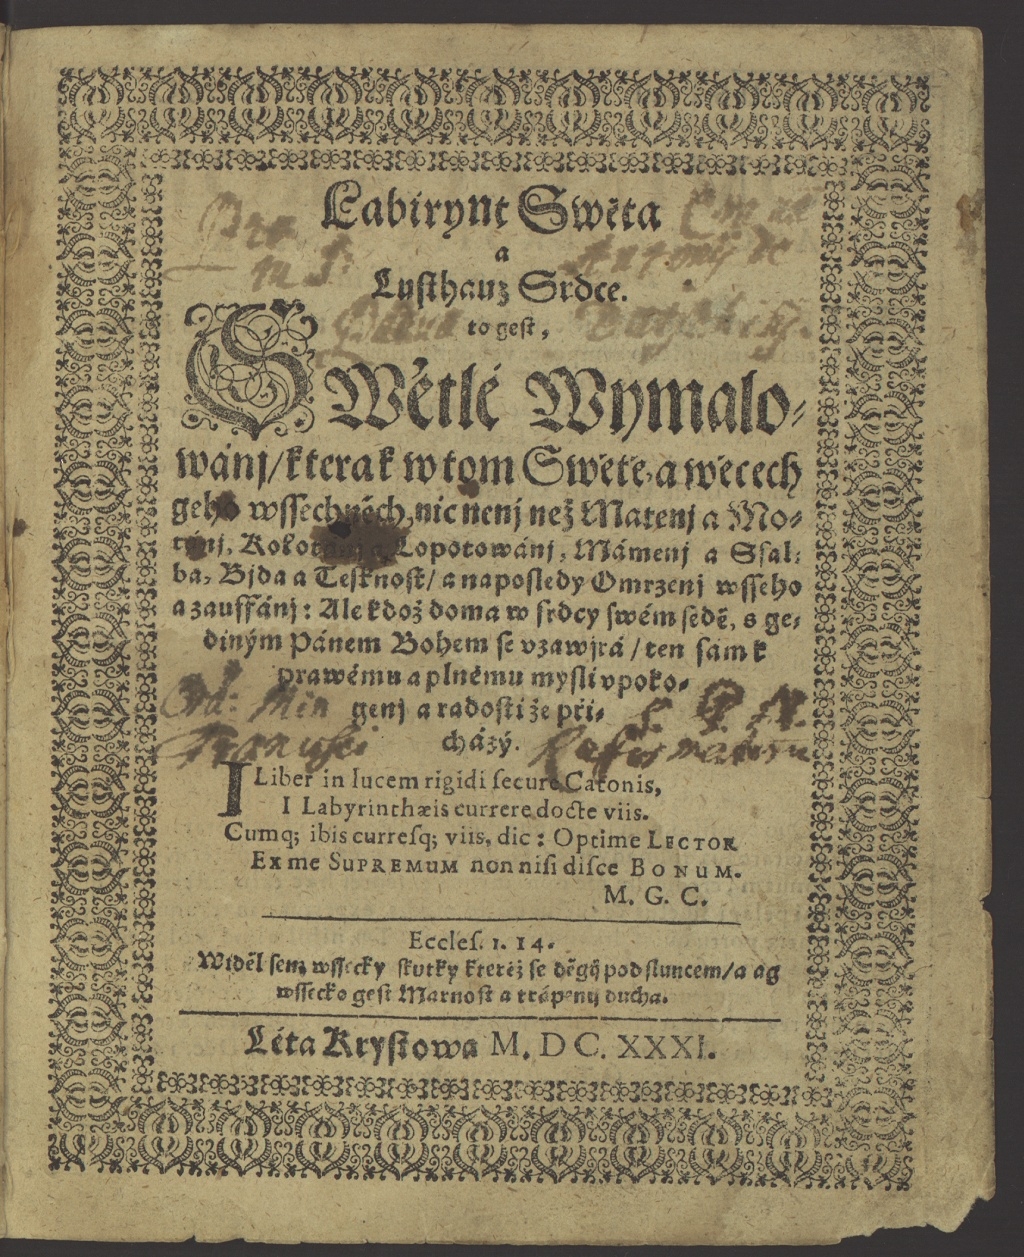 Labirynt Swěta
a
Lusthauz Srdce.
to gest,
SWětlé Wymalo⸗
wánj/ kterak w tom Swětě, a wěcech
geho wssechněch, nic nenj než Matenj a Mo⸗
tánj, Kolotánj a Lopotowánj, Mámenj a Ssal⸗
ba, Bjda a Tesknost/ a naposledy Omrzenj wsseho
a zauffánj: Ale kdož doma w srdcy swém sedě, s ge⸗
diným Pánem Bohem se vzawjrá/ ten sám k
prawému a plnému mysli vpoko⸗
genj a radosti že při⸗
cházý.
I Liber in lucem rigidi secure Catonis,
I Labyrinthæis currere docte viis.
Cumq; ibis curresq; viis, dic: Optime LECTOR
Ex me SUPREMUM non nisi disce BONUM.
M. G. C.
Eccles. 1. 14.
Widěl sem wssecky skutky kteréž se dějí pod sluncem/ a ag
wssecko gest Marnost a trápenij ducha.
Léta Krystowa M. DC. XXXI.